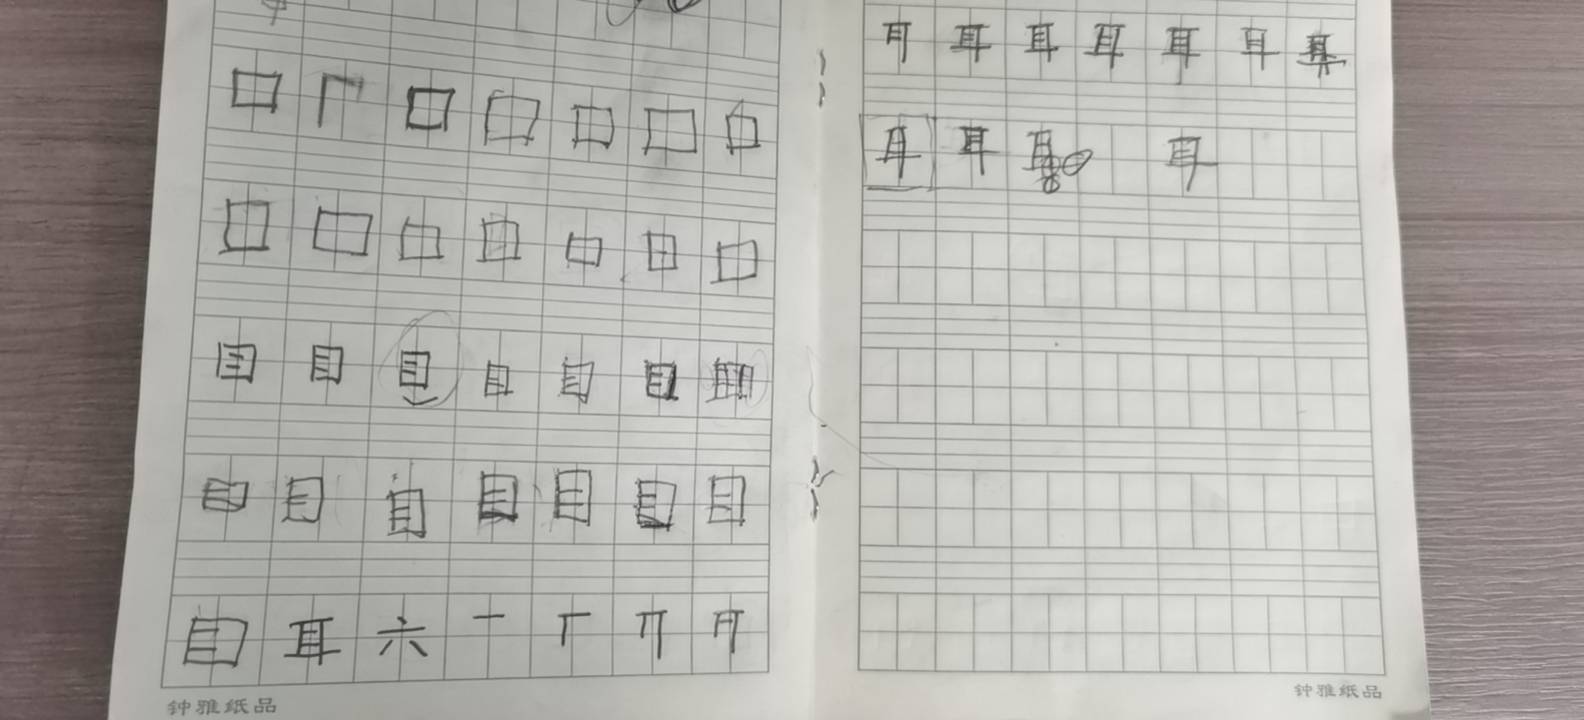 口 口 口 口 口 口
口 口 口 口 口 口 口
目 目 目 目 目 目
目 目 目 目 目 目 目
目 耳 六 一
钟雅纸品
耳 耳 耳 耳 耳 耳
耳 耳 耳
钟雅纸品